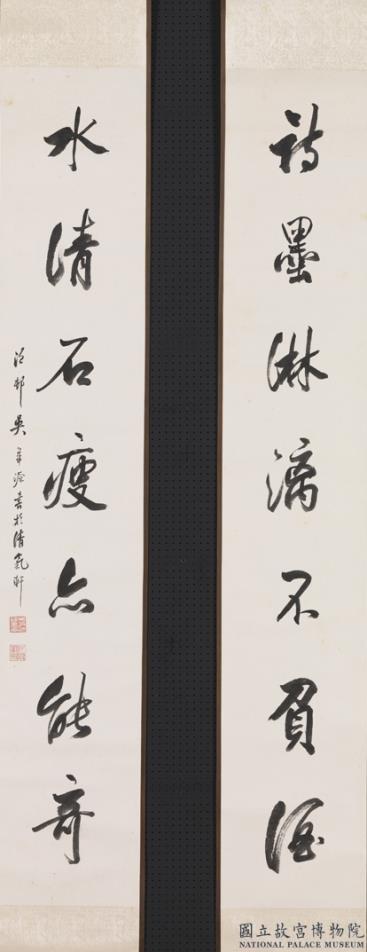 詩墨淋漓不負酒
水清石瘦亦能奇
邨吳
書於清氣軒
國立故宮博物院
NATIONAL PALACE MUSEUM